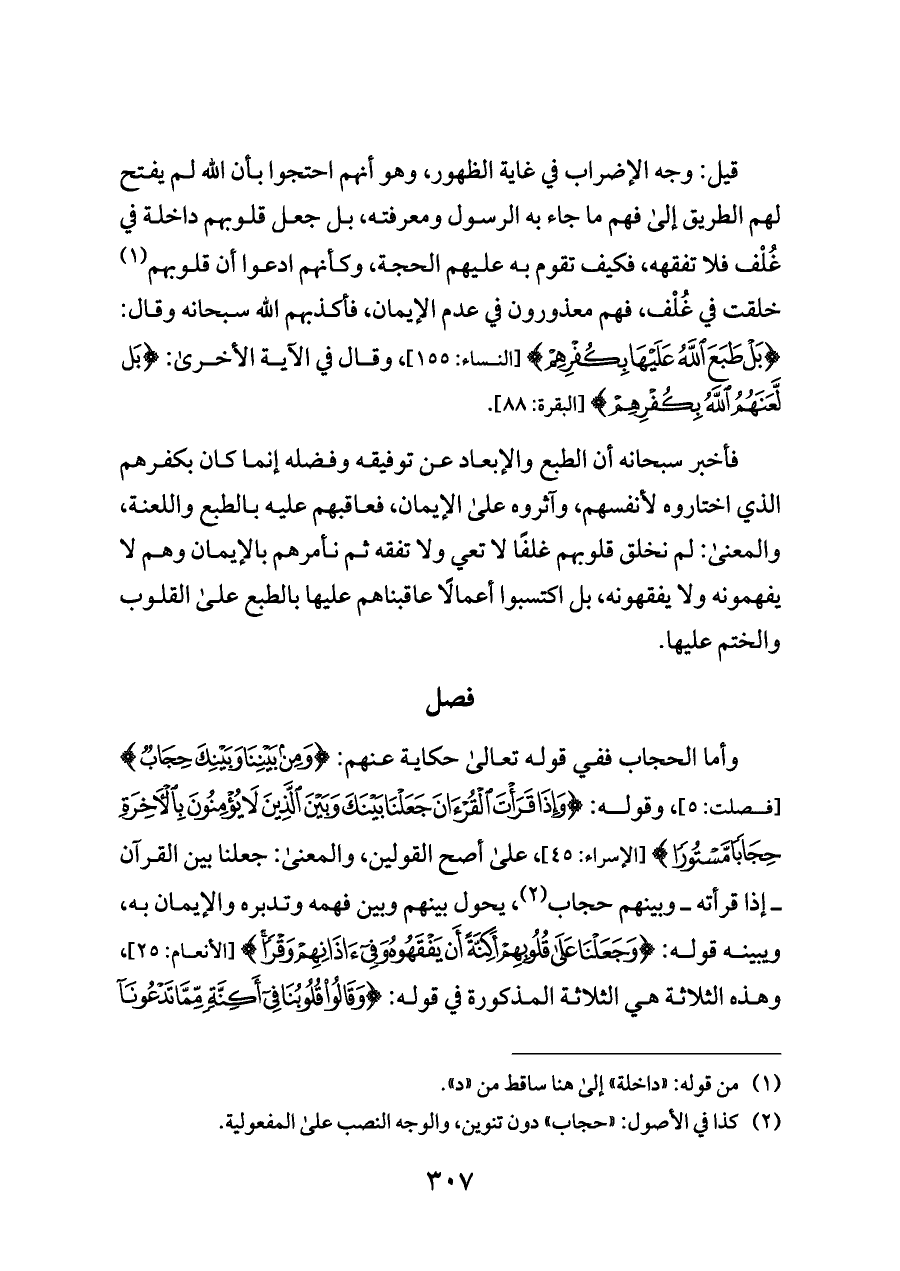 قيل: وجه الإضراب في غاية الظهور، وهو أنهم احتجوا بأن الله لم يفتح
لهم الطريق إلىٰ فهم ما جاء به الرسول ومعرفته، بل جعل قلوبهم داخلة في
غُلْف فلا تفقهه، فكيف تقوم به عليهم الحجة، وكأنهم ادعوا أن قلوبهم(١)
خلقت في غُلْف، فهم معذورون في عدم الإيمان، فأكذبهم الله سبحانه وقال:
﴿بَلْ طَبَعَ ٱللَّهُ عَلَيْهَا بِكُفْرِهِمْ﴾ [النساء: ١٥٥]، وقال في الآية الأخرىٰ: ﴿بَل
لَّعَنَهُمُ ٱللَّهُ بِكُفْرِهِمْ﴾ [البقرة: ٨٨].
فأخبر سبحانه أن الطبع والإبعاد عن توفيقه وفضله إنما كان بكفرهم
الذي اختاروه لأنفسهم، وآثروه علىٰ الإيمان، فعاقبهم عليه بالطبع واللعنة،
والمعنىٰ: لم نخلق قلوبهم غلفًا لا تعي ولا تفقه ثم نأمرهم بالإيمان وهم لا
يفهمونه ولا يفقهونه، بل اكتسبوا أعمالًا عاقبناهم عليها بالطبع علىٰ القلوب
والختم عليها.
فصل
وأما الحجاب ففي قوله تعالىٰ حكاية عنهم: ﴿وَمِنۢ بَيْنِنَا وَبَيْنِكَ حِجَابٌ﴾
[فصلت: ٥]، وقوله: ﴿وَإِذَا قَرَأْتَ ٱلْقُرْءَانَ جَعَلْنَا بَيْنَكَ وَبَيْنَ ٱلَّذِينَ لَا يُؤْمِنُونَ بِٱلْأَخِرَةِ
حِجَابًا مَّسْتُورًا﴾ [الإسراء: ٤٥]، علىٰ أصح القولين، والمعنىٰ: جعلنا بين القرآن
ـ إذا قرأته ـ وبينهم حجاب(٢)، يحول بينهم وبين فهمه وتدبره والإيمان به،
ويبينه قوله: ﴿وَجَعَلْنَا عَلَىٰ قُلُوبِهِمْ أَكِنَّةً أَن يَفْقَهُوهُ وَفِىٓ ءَاذَانِهِمْ وَقْرًا﴾ [الأنعام: ٢٥]،
وهذه الثلاثة هي الثلاثة المذكورة في قوله: ﴿وَقَالُوا۟ قُلُوبُنَا فِىٓ أَكِنَّةٍ مِّمَّا تَدْعُونَآ
(١) من قوله: «داخلة» إلىٰ هنا ساقط من «د».
(٢) كذا في الأصول: «حجاب» دون تنوين، والوجه النصب علىٰ المفعولية.
٣٠٧